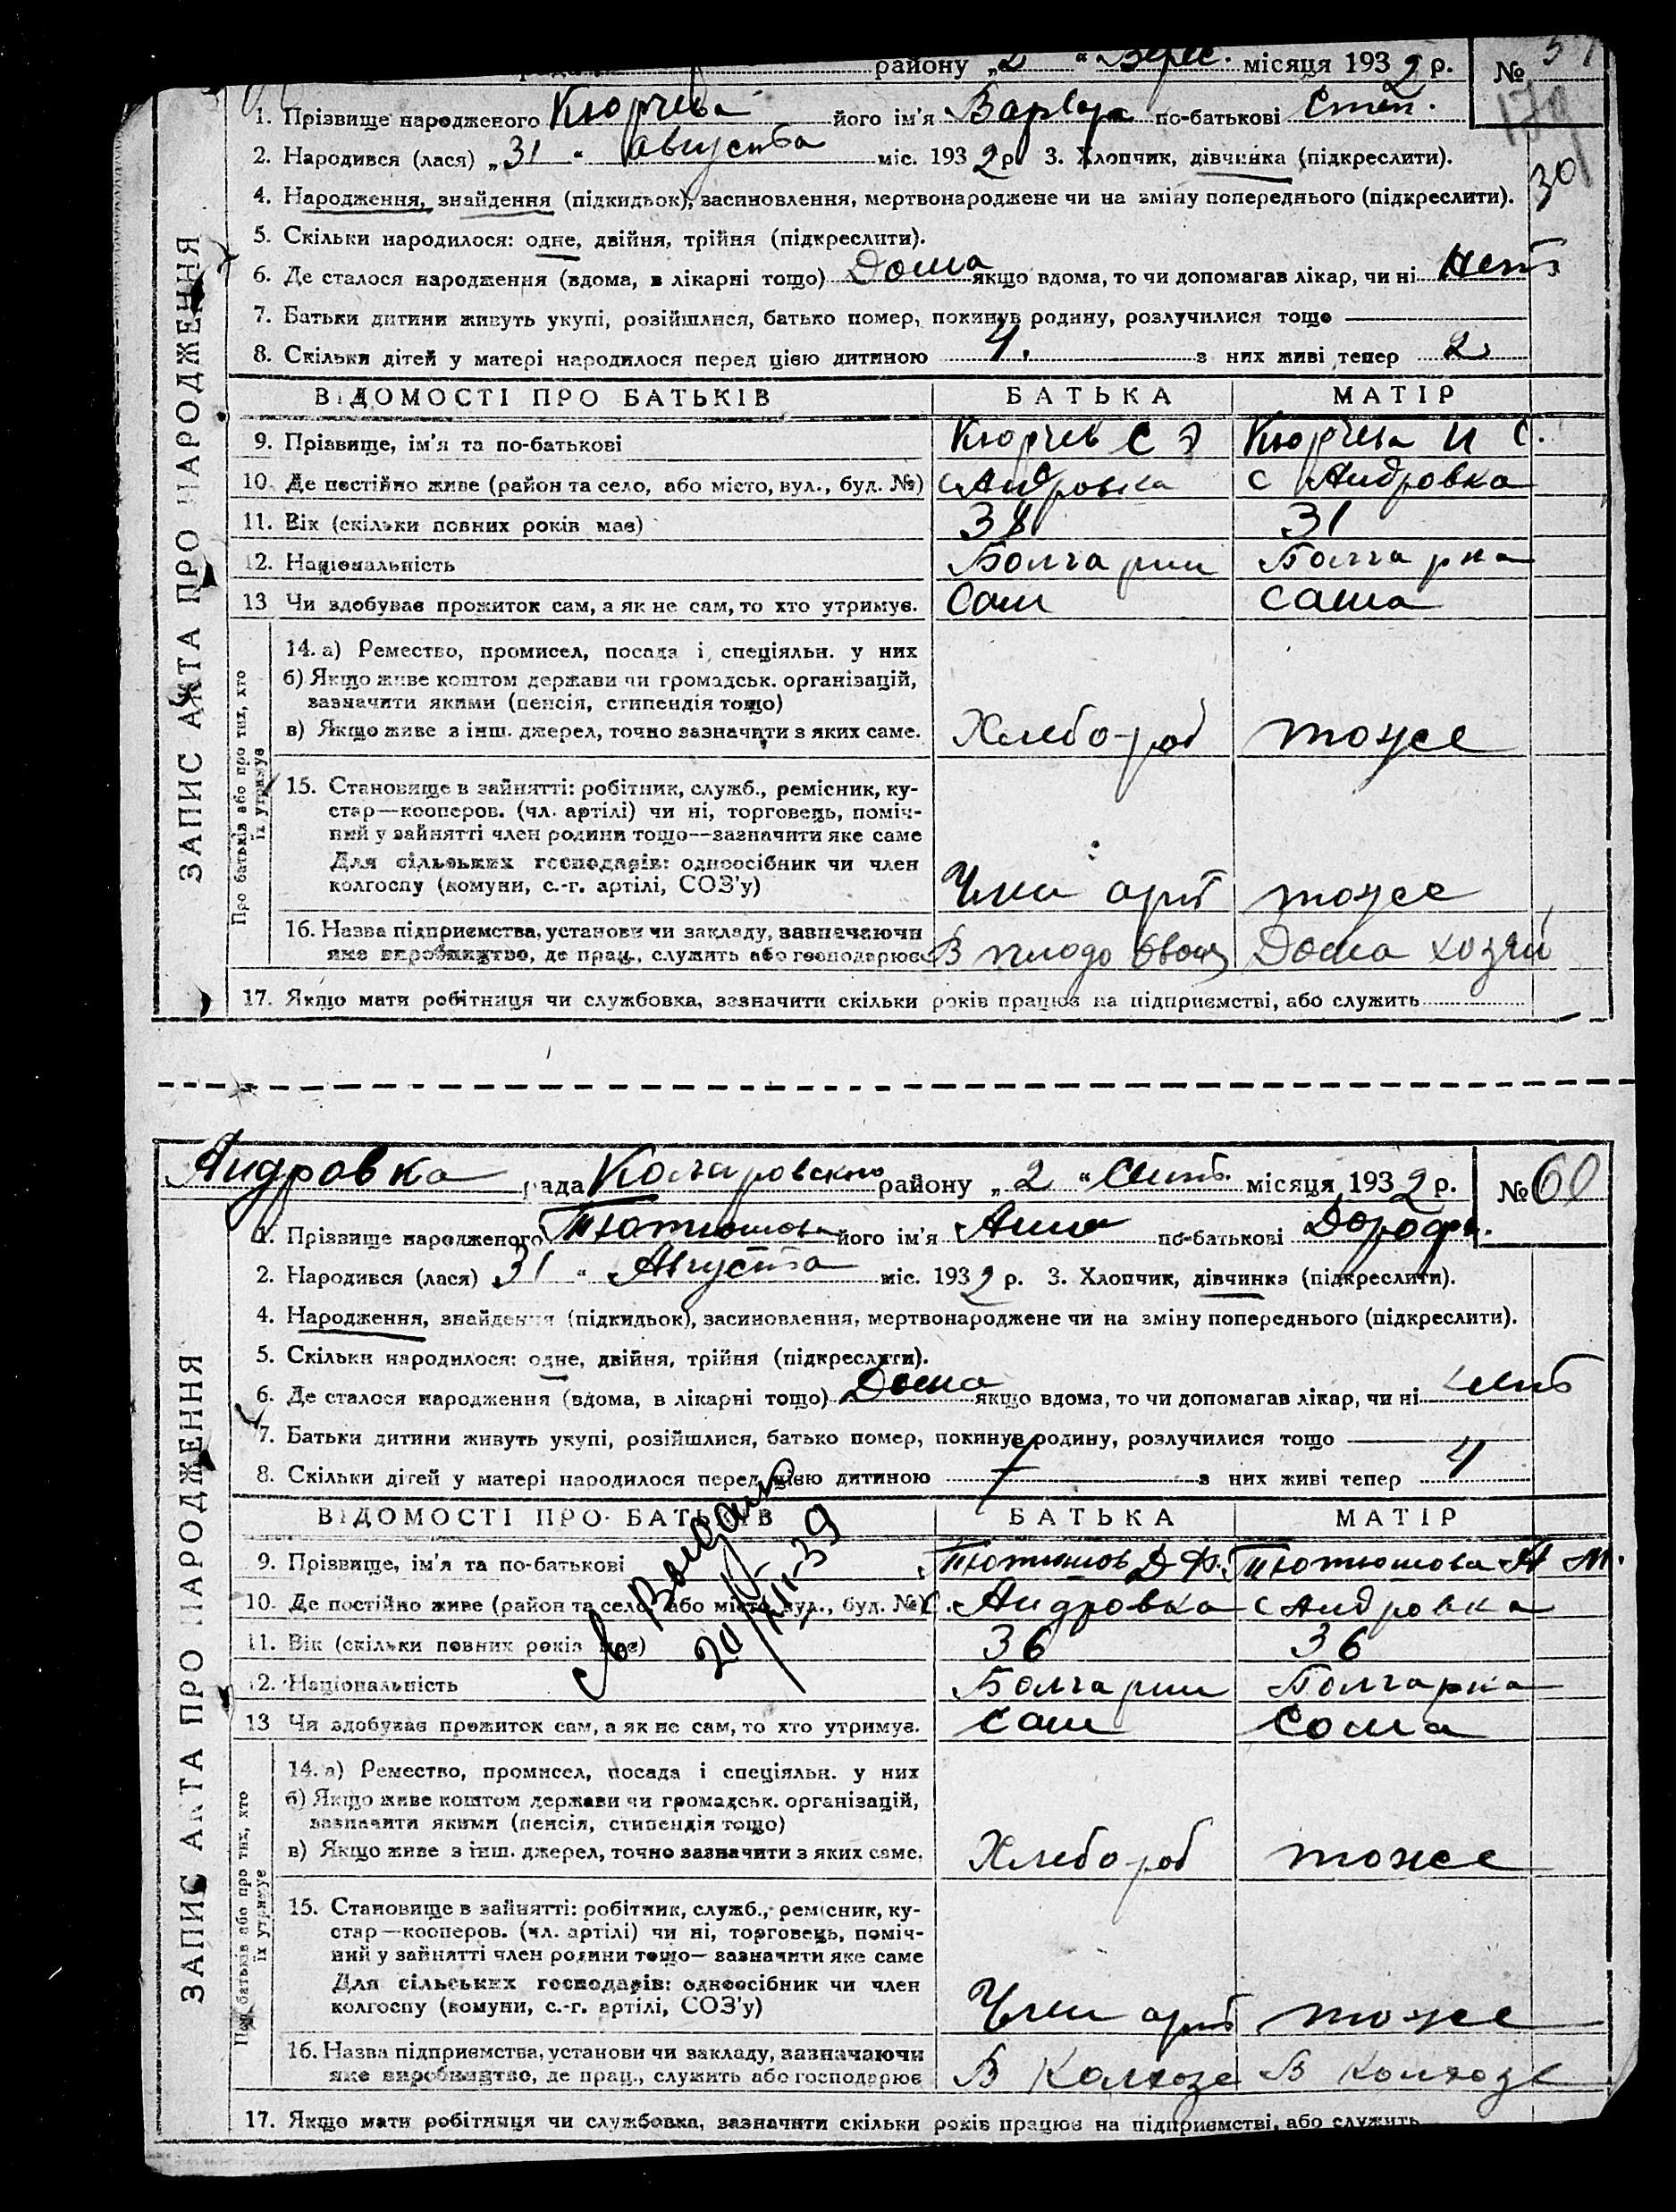 району „2“ Верес. місяця 1932 р. №
1. Прізвище народженого Кюрчева його ім'я Варвара по-батькові Степ.
2. Народився (лася) „31“ августа міс. 1932 р. 3. Хлопчик, дівчинка (підкреслити).
30
4. Народження, знайдення (підкидьок), засиновлення, мертвонароджене чи на зміну попереднього (підкреслити).
5. Скільки народилося: одне, двійня, трійня (підкреслити).
6. Де сталося народження (вдома, в лікарні тощо) Дома якщо вдома, то чи допомагав лікар, чи ні нет
7. Батьки дитини живуть укупі, розійшлися, батько помер, покинув родину, розлучилися тощо
8. Скільки дітей у матері народилося перед цією дитиною 4. з них живі тепер 2
ВІДОМОСТІ ПРО БАТЬКІВ БАТЬКА МАТІР
9. Прізвище, ім'я та по-батькові Кюрчев С Кюрчева И С.
10. Де постійно живе (район та село, або місто, вул., буд. №) с Андровка с Андровка
11. Вік (скільки повних років має) 38 31
12. Національність Болгарин Болгарка
13 Чи здобуває прожиток сам, а як не сам, то хто утримує. Сам сама
ЗАПИС АКТА ПРО НАРОДЖЕННЯ
Про батьків або про тих, хто
їх утримує
14. а) Ремество, промисел, посада і спеціяльн. у них
б) Якщо живе коштом держави чи громадськ. організацій,
зазначити якими (пенсія, стипендія тощо)
в) Якщо живе з інш. джерел, точно зазначити з яких саме. Хлебороб тоже
15. Становище в зайнятті: робітник, служб., ремісник, ку-
стар—кооперов. (чл. артілі) чи ні, торговець, поміч-
ний у зайнятті член родини тощо—зазначити яке саме
Для сільських господарів: одноосібник чи член
колгоспу (комуни, с.-г. артілі, СОЗ'у) Член арт тоже
16. Назва підприємства, установи чи закладу, зазначаючи
яке виробництво, де прац., служить або господарює В плодо овощ Дома хозяй
17. Якщо мати робітниця чи службовка, зазначити скільки років працює на підприємстві, або служить
Андровка рада Коларовского району „2“ Сент. місяця 1932 р. № 60
1. Прізвище народженого Тютюшова його ім'я Анна по-батькові Дороф.
2. Народився (лася) 31 “ Августа міс. 1932 р. 3. Хлопчик, дівчинка (підкреслити).
4. Народження, знайдення (підкидьок), засиновлення, мертвонароджене чи на зміну попереднього (підкреслити).
5. Скільки народилося: одне, двійня, трійня (підкреслити).
6. Де сталося народження (вдома, в лікарні тощо) Дома якщо вдома, то чи допомагав лікар, чи ні нет
7. Батьки дитини живуть укупі, розійшлися, батько помер, покинув родину, розлучилися тощо
8. Скільки дітей у матері народилося перед цією дитиною 7 з них живі тепер 4
ВІДОМОСТІ ПРО БАТЬКІВ БАТЬКА МАТІР
9. Прізвище, ім'я та по-батькові Тютюшов Д Ф. Тютюшова А М.
10. Де постійно живе (район та село, або місто, вул., буд. №) с. Андровка с Андровка
11. Вік (скільки повних років має) 36 36
12. Національність Болгарин Болгарка
13 Чи здобуває прожиток сам, а як не сам, то хто утримує. сам сома
ЗАПИС АКТА ПРО НАРОДЖЕННЯ
Про батьків або про тих, хто
їх утримує
14. а) Ремество, промисел, посада і спеціяльн. у них
б) Якщо живе коштом держави чи громадськ. організацій,
зазначити якими (пенсія, стипендія тощо)
в) Якщо живе з інш. джерел, точно зазначити з яких саме. Хлебороб тоже
15. Становище в зайнятті: робітник, служб., ремісник, ку-
стар—кооперов. (чл. артілі) чи ні, торговець, поміч-
ний у зайнятті член родини тощо—зазначити яке саме
Для сільських господарів: одноосібник чи член
колгоспу (комуни, с.-г. артілі, СОЗ'у) Член арт тоже
16. Назва підприємства, установи чи закладу, зазначаючи
яке виробництво, де прац., служить або господарює В Колхозе В Колхозе
17. Якщо мати робітниця чи службовка, зазначити скільки років працює на підприємстві, або служить